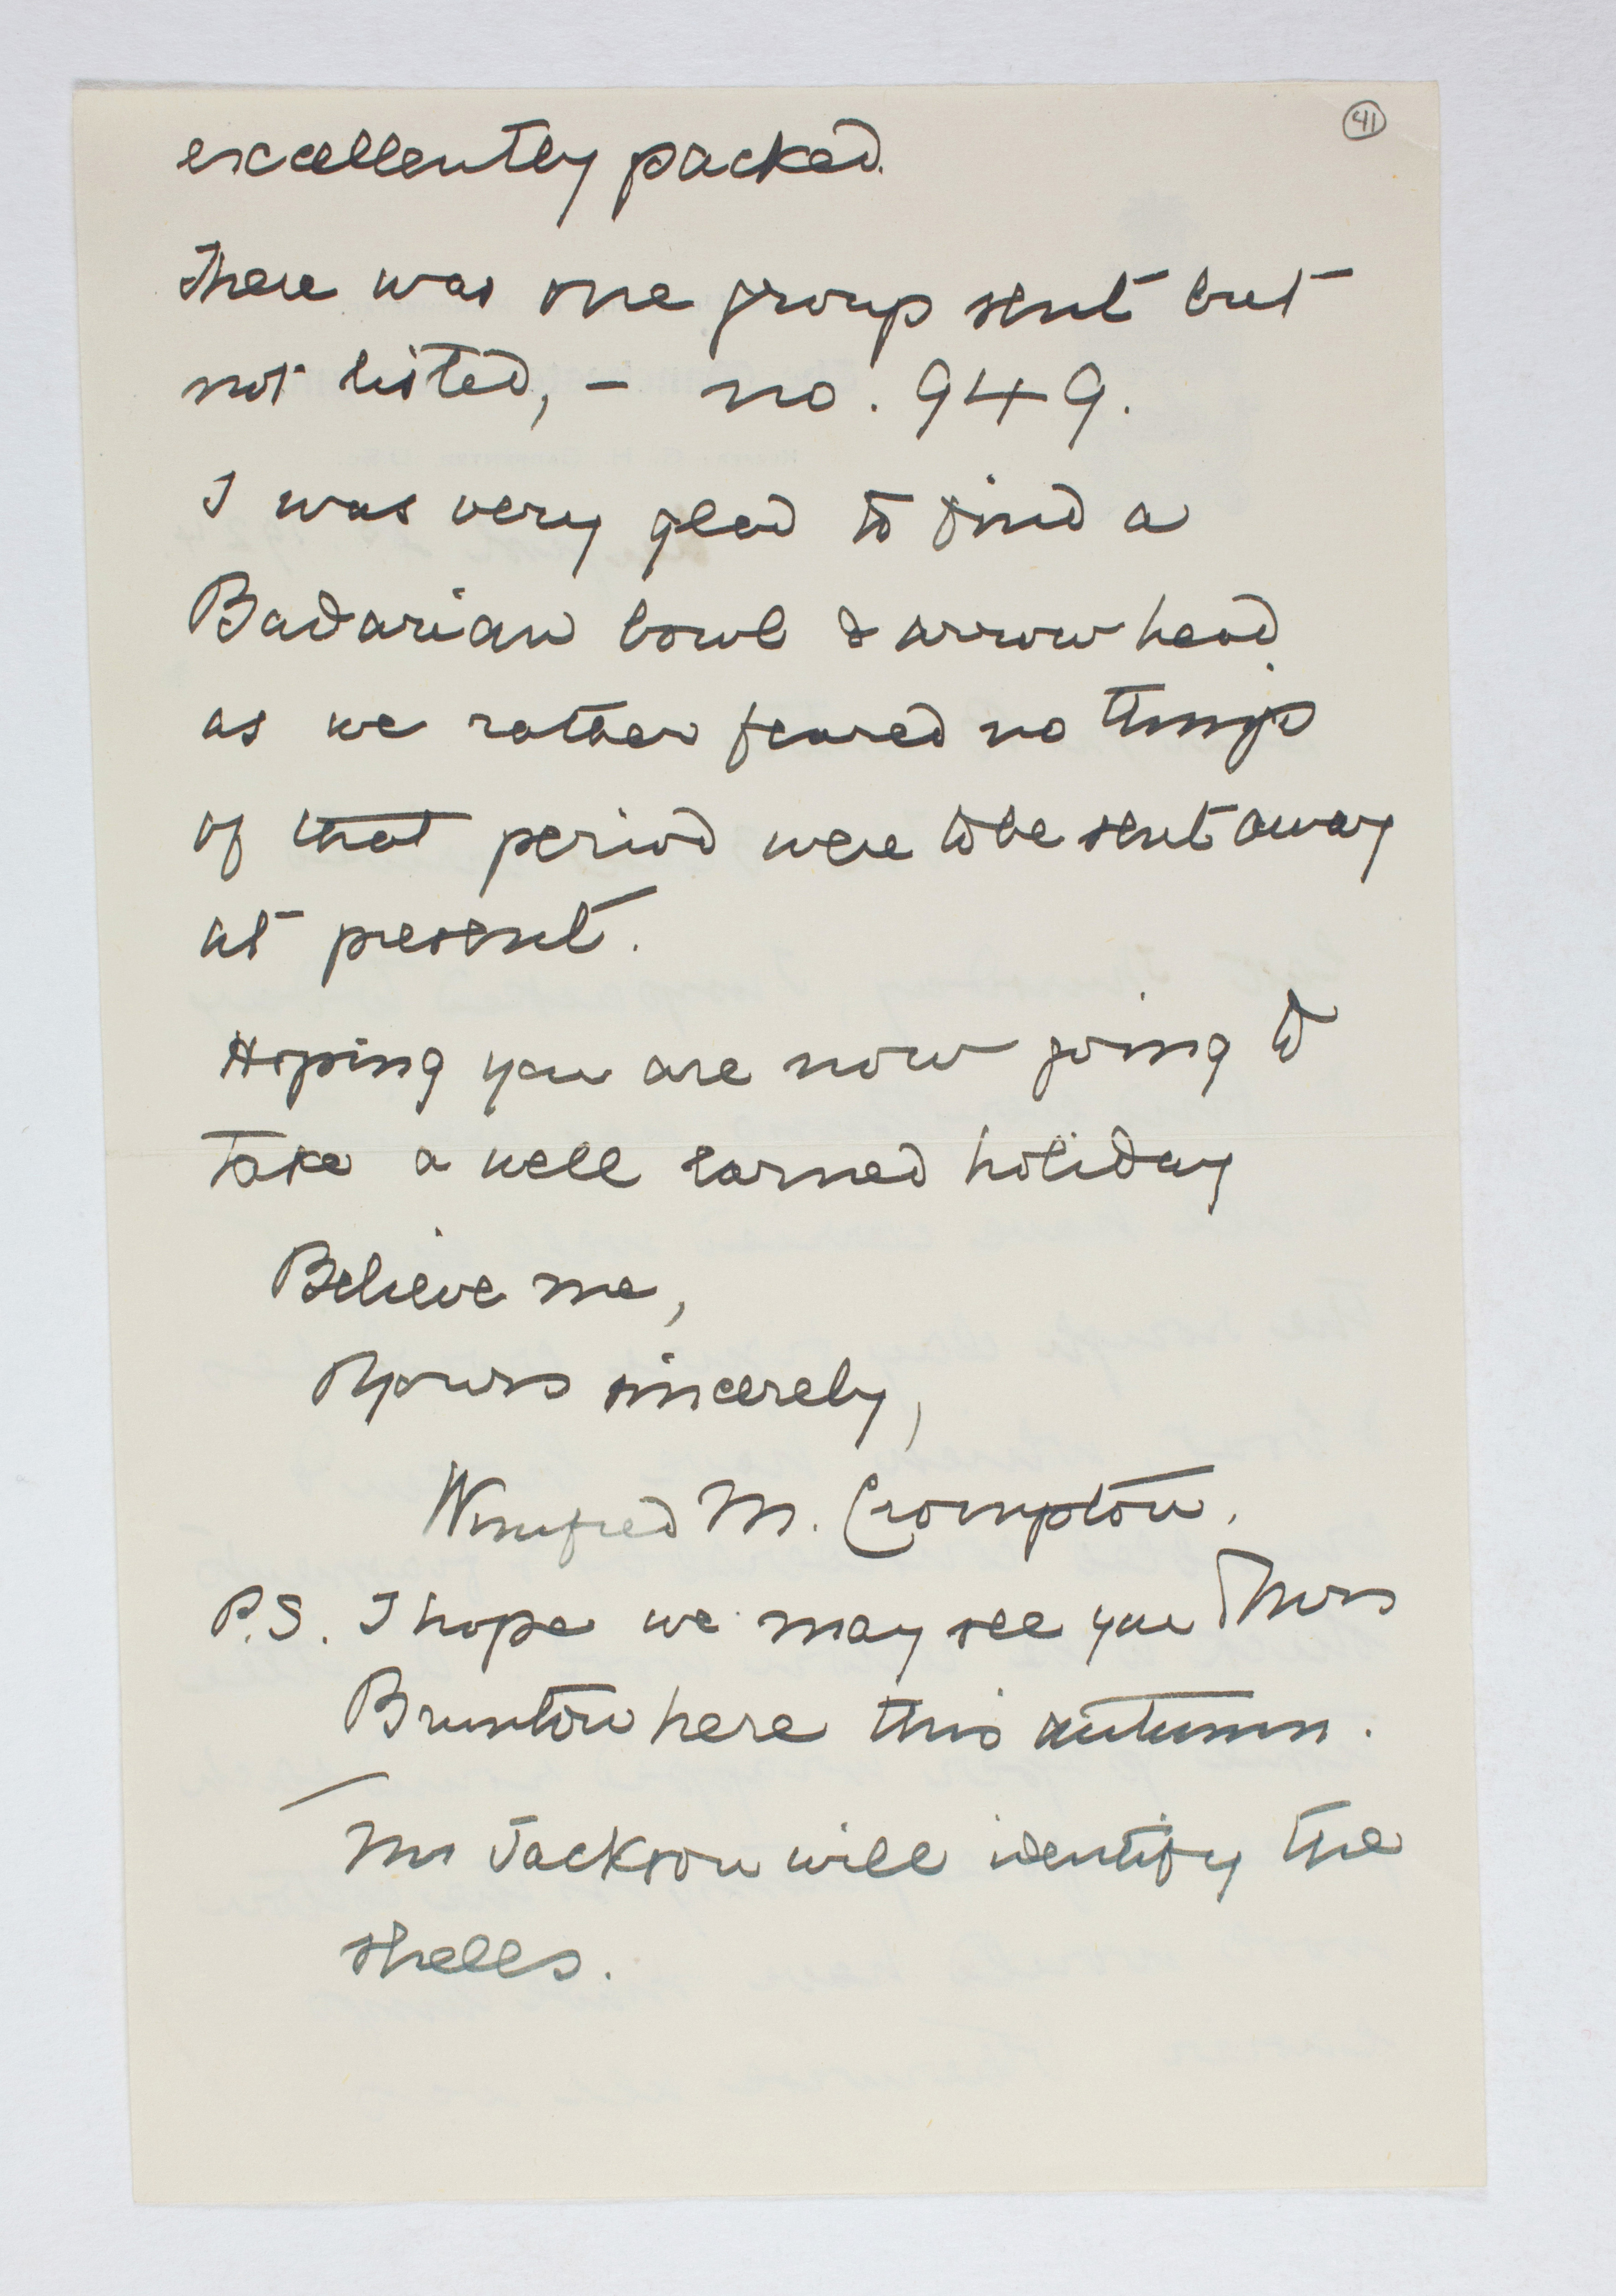 41
excellently packed.
There was one group sent but
not listed, - no. 949.
I was very glad to find a
Badarian bowl & arrow head
as we rather feared no things
of that period were to be sent away
at present.
Hoping you are now going to
take a well earned holiday
Believe me,
Yours sincerely,
Winifred M. Crompton.
P.S. I hope we may see you & Mrs
Brunton here this autumn.
Mr Jackson will identify the
shells.